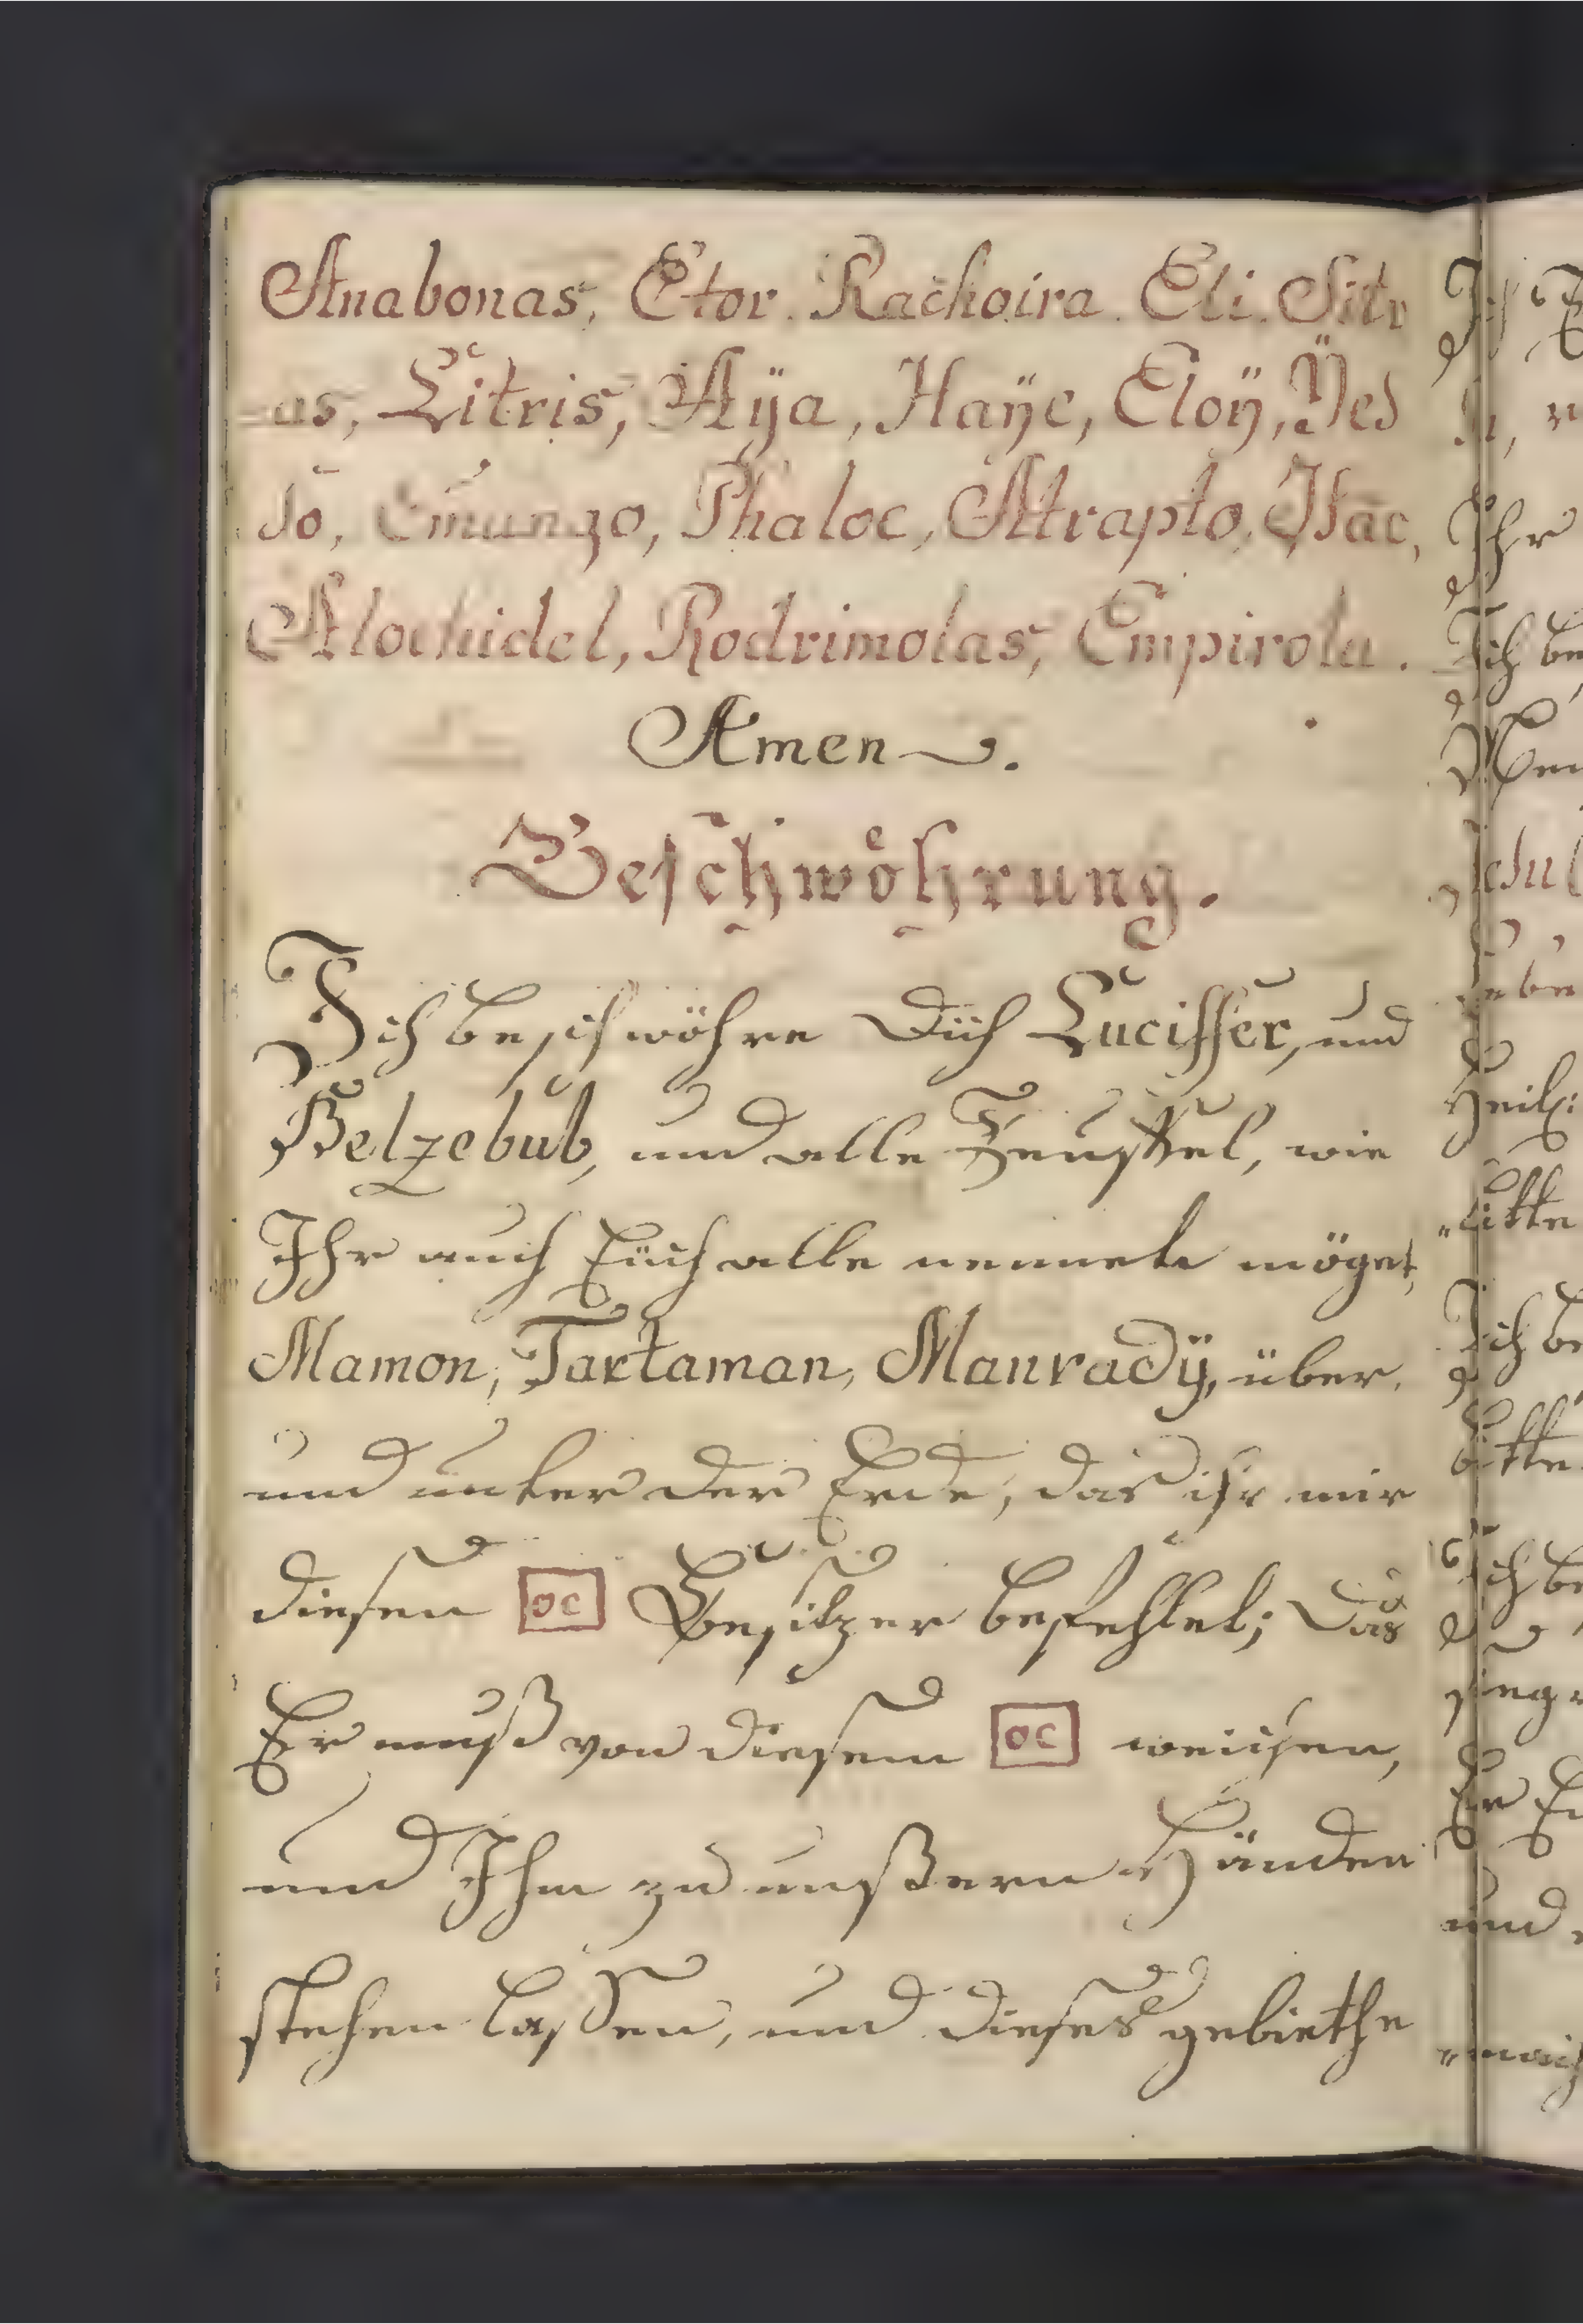 Anabonas, Etor. Rachoira. Eli. Sitr
-as, Litris, Aÿa, Haÿe, Eloÿ, Ÿes
do, Emunzo, Phaloc, Atraplo, Isac,
Alochidel, Rodrimolas, Empirola.
Amen.
Beschwöhrung.
Ich beschwöhre Dich Luciffer, und
Belzebub, und alle Teuffel, wie
Ihr auch Euch alle nennete möget,
Mamon, Tartaman, Manradÿ, über,
und unter der Erde, das ihr mir
diesen oc Besitzer befehlet; Das
Er muß von diesem oc weichen,
und Ihm zu unßern Händen
stehen lassen, und dieses gebiethe